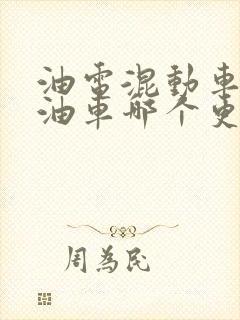 油電混動車
油車哪个更
周為民